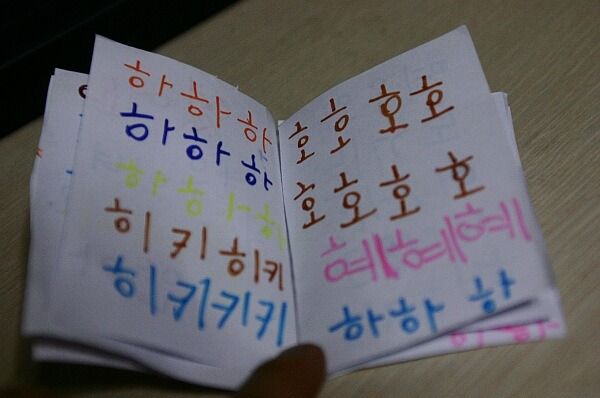 하하하
하하하
하하하
히키히키
히키키키
호호호호
호호호호
헤헤헤
하하하